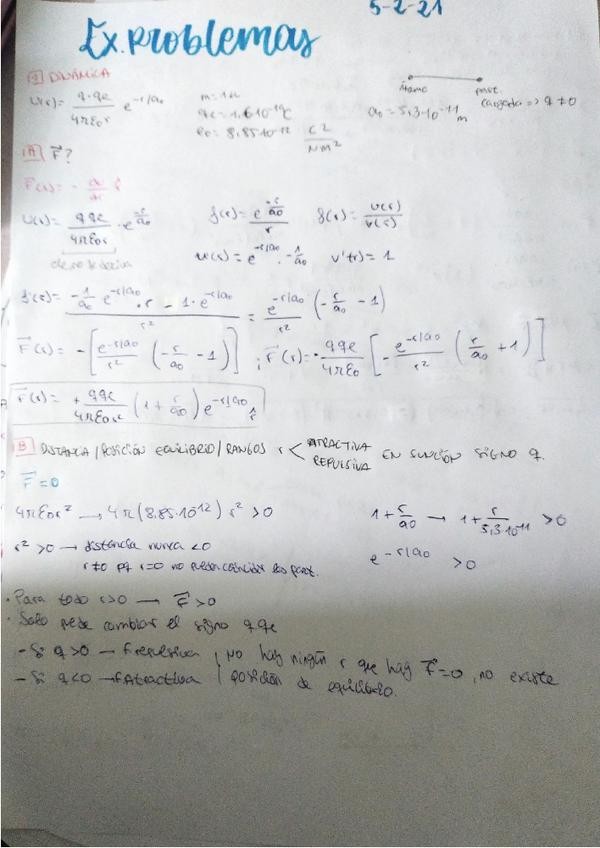 5-2-21
Ex. Problemas
1 DINÁMICA
átomo part. cargada => q ≠ 0
U(r) = q·qe / 4πε₀r e^-r/a₀
m = 1u
qe = 1,6·10^-19 C
ε₀ = 8,85·10^-12 C²/Nm²
a₀ = 5,3·10^-11 m
A F⃗?
F⃗(r) = - du/dr r̂
U(r) = qqe / 4πε₀r · e^-r/a₀ f(r) = e^-r/a₀ / r f(r) = u(r) / v(r)
u'(r) = e^-r/a₀ · -1/a₀ v'(r) = 1
f'(r) = (-1/a₀ e^-r/a₀ · r - 1·e^-r/a₀) / r² = e^-r/a₀ / r² (-r/a₀ - 1)
F⃗(r) = -[e^-r/a₀ / r² (-r/a₀ - 1)] ; F⃗(r) = -qqe / 4πε₀ [-e^-r/a₀ / r² (r/a₀ + 1)]
F⃗(r) = + qqe / 4πε₀r² (1 + r/a₀) e^-r/a₀ r̂
B DISTANCIA / POSICIÓN EQUILIBRIO / RANGOS r < ATRACTIVA REPULSIVA EN FUNCIÓN SIGNO q.
F⃗ = 0
4πε₀r² → 4π(8,85·10^12) r² > 0 1 + r/a₀ → 1 + r / 5,3·10^-11 > 0
r² > 0 → distancia nunca < 0 e^-r/a₀ > 0
r ≠ 0 pq r=0 no pueden coincidir las part.
· Para todo r > 0 → F⃗ > 0
· Solo puede cambiar el signo q qe
- Si q > 0 → F repulsiva
- Si q < 0 → F Atractiva
No hay ningún r que haya F⃗ = 0, no existe
posición de equilibrio.